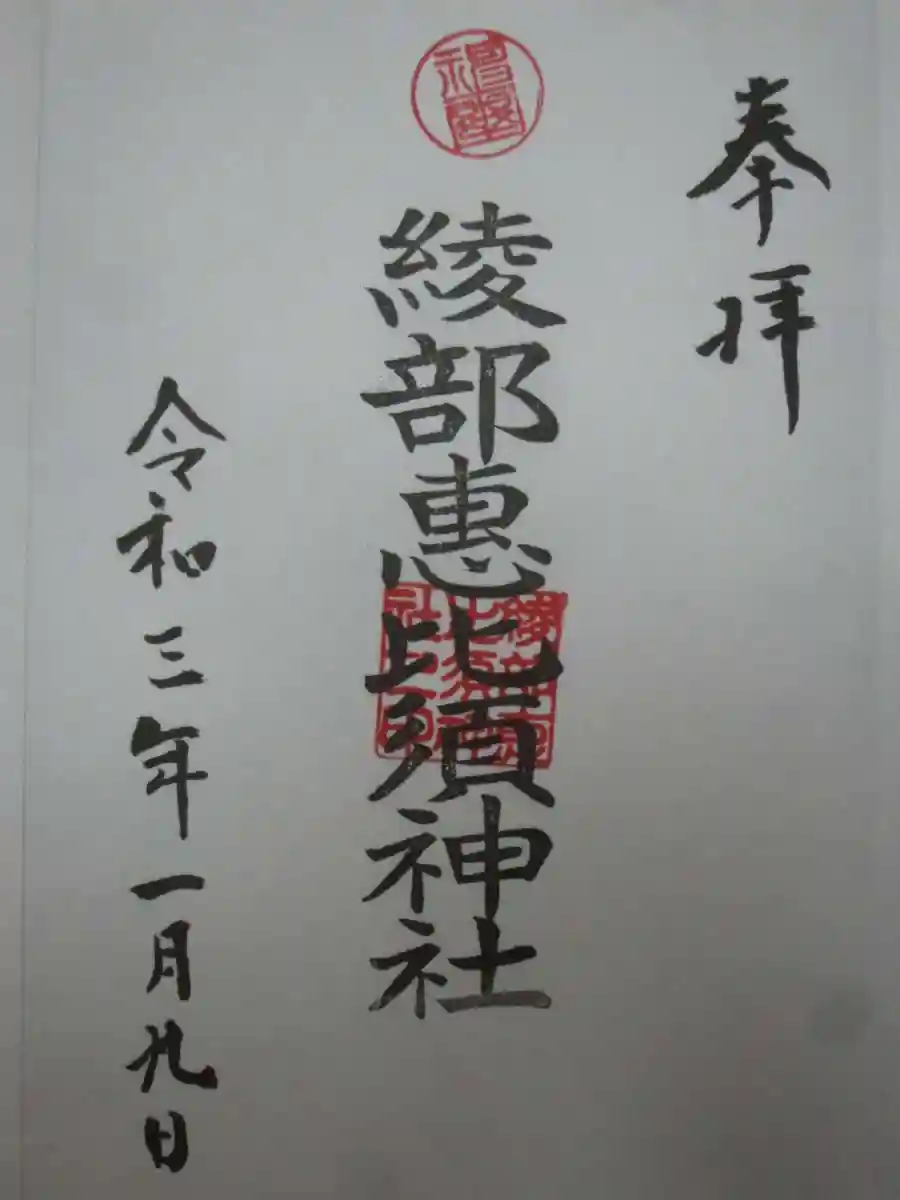 奉拝
綾部恵比須神社
令和三年一月九日